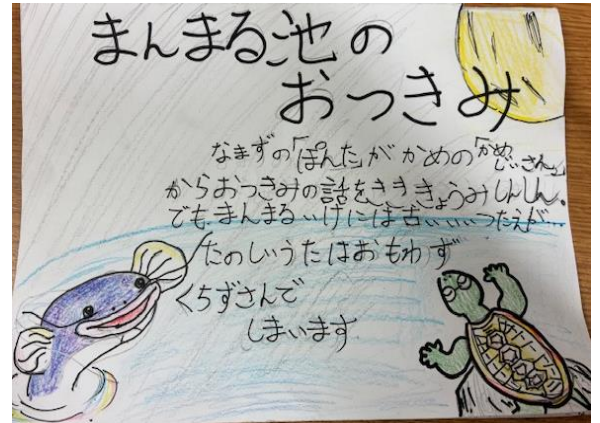 まんまる池の
おつきみ
なまずの「ぽんた」がかめの「かめじいさん」
からおつきみの話をきききょうみしんしん。
でもまんまるいけには古いいいつたえが
たのしいうたはおもわず
くちずさんで
しまいます